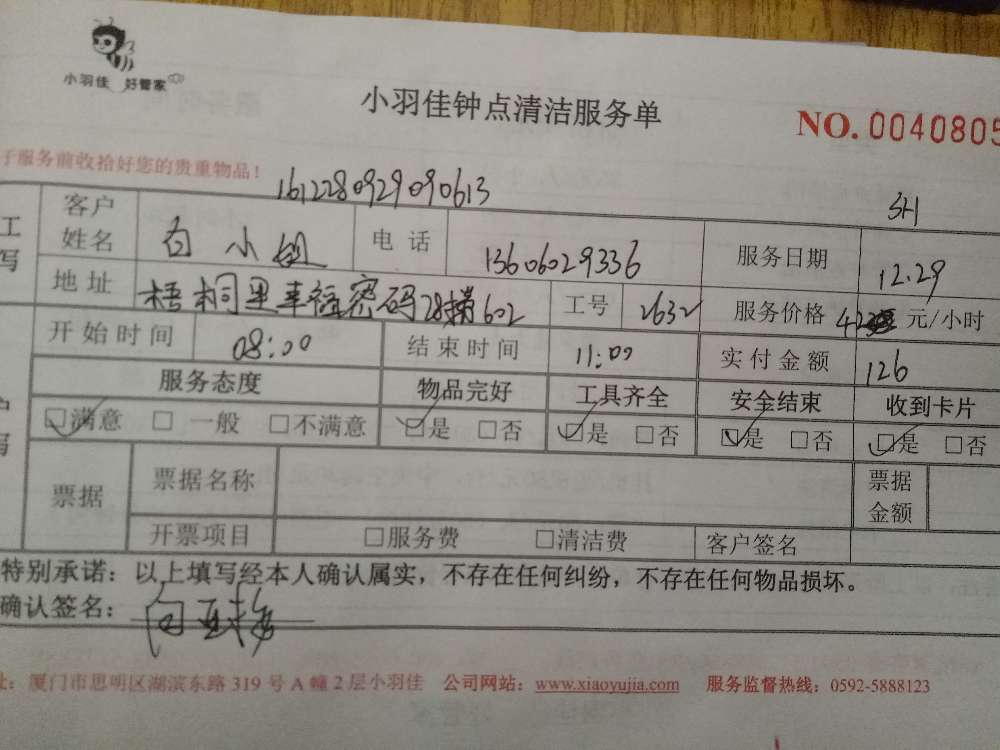 小羽佳 好管家
小羽佳钟点清洁服务单
NO. 0040805
于服务前收拾好您的贵重物品！
1612280929090613
SH
工 客户姓名 白小姐 电话 13606029336 服务日期 12.29
写 地址 梧桐里幸福密码28梯602 工号 2632 服务价格 42 元/小时
开始时间 08:00 结束时间 11:00 实付金额 126
服务态度 物品完好 工具齐全 安全结束 收到卡片
☑满意 □一般 □不满意 ☑是 □否 ☑是 □否 ☑是 □否 ☑是 □否
写 票据 票据名称 票据金额
开票项目 □服务费 □清洁费 客户签名
特别承诺：以上填写经本人确认属实，不存在任何纠纷，不存在任何物品损坏。
确认签名：
址：厦门市思明区湖滨东路 319 号 A 幢 2 层小羽佳 公司网站：www.xiaoyujia.com 服务监督热线：0592-5888123